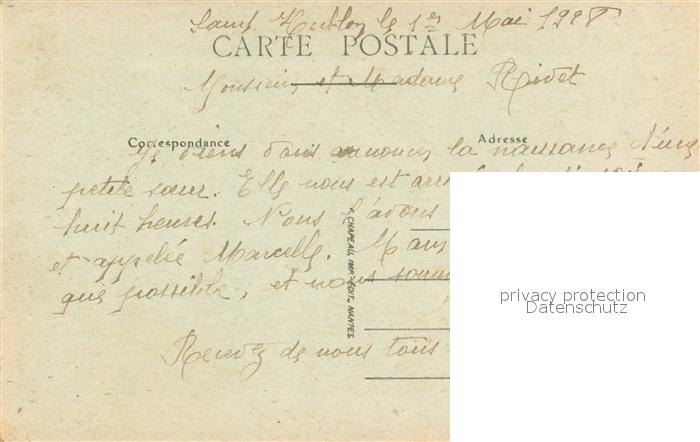 Saint le 1er Mai
CARTE POSTALE
Monsieur et Madame Rivet
Correspondance
Adresse
Je viens vous annoncer la naissance d'une
petite sœur. Elle nous est
huit heures. Nous l'avons
et appelée Marcelle.
que possible, et nous
Recevez de nous tous
F. CHAPEAU, IMP.-ÉDIT., NANTES.
privacy protection
Datenschutz